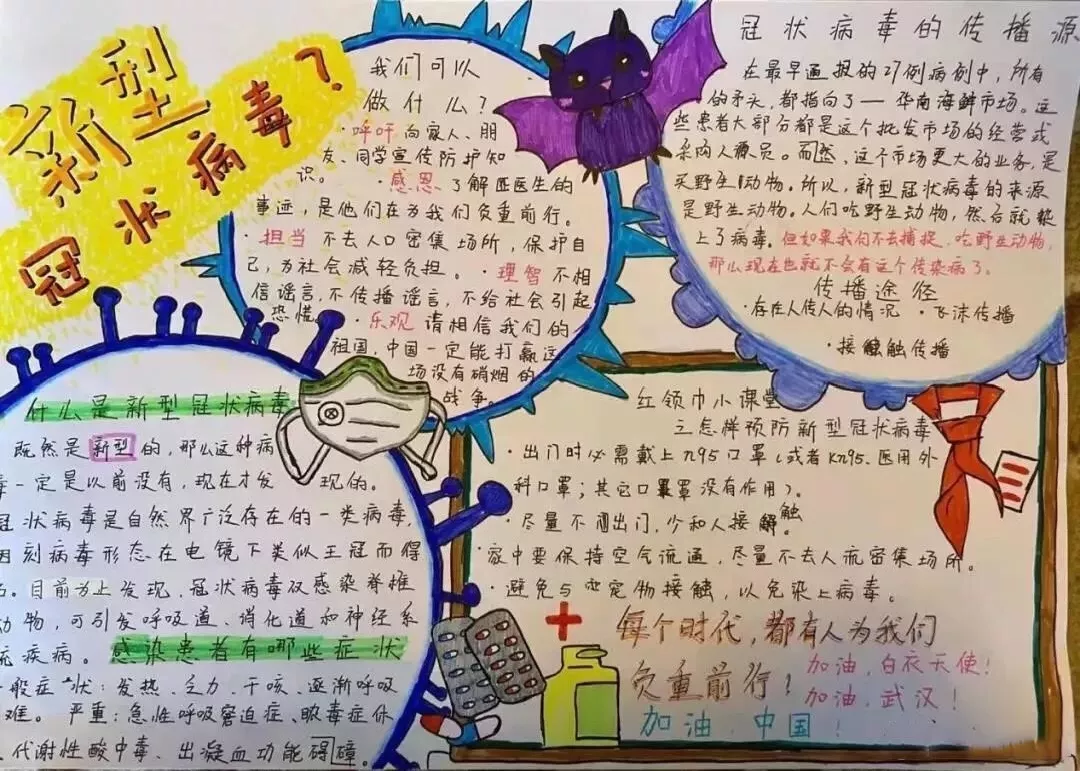 新型
冠状病毒？
我们可以
做什么？
·呼吁 向家人、朋
友、同学宣传防护知
识。 ·感恩 了解医生的
事迹，是他们在为我们负重前行。
·担当 不去人口密集场所，保护自
己，为社会减轻负担。·理智 不相
信谣言，不传播谣言，不给社会引起
恐慌。·乐观 请相信我们的
祖国，中国一定能打赢这
场没有硝烟的
战争。
冠状病毒的传播源
在最早通报的27例病例中，所有
的矛头，都指向了一华南海鲜市场。这
些患者大部分都是这个批发市场的经营或
采购人员。而然，这个市场更大的业务，是
买野生动物。所以，新型冠状病毒的来源
是野生动物。人们吃野生动物，然后就
上了病毒。但如果我们不去捕捉、吃野生动物，
那么现在也就不会有这个传染病了。
传播途径
·存在人传人的情况 ·飞沫传播
·接触传播
什么是新型冠状病毒
既然是新型的，那么这种病
毒一定是以前没有，现在才发现的。
冠状病毒是自然界广泛存在的一类病毒，
因刻病毒形态在电镜下类似王冠而得
名。目前为上发现，冠状病毒仅感染脊椎
动物，可引发呼吸道、消化道和神经系
统疾病。感染患者有哪些症状
一般症状：发热、乏力、干咳、逐渐呼吸
困难。严重：急性呼吸窘迫症、脓毒症休
代谢性酸中毒、出凝血功能碍障。
红领巾小课堂
之怎样预防新型冠状病毒
·出门时必需戴上n95口罩（或者Kn95、医用外
科口罩；其它口罩没有作用）。
·尽量不出门，少和人接触
·家中要保持空气流通，尽量不去人流密集场所。
·避免与宠物接触，以免染上病毒。
每个时代，都有人为我们
负重前行！
加油，白衣天使！
加油，武汉！
加油，中国！